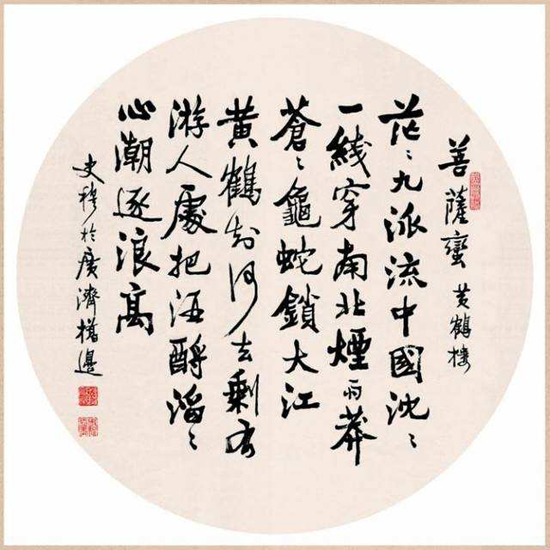 菩薩蠻 黄鶴樓
茫〻九派流中國沈〻
一綫穿南北煙雨莽
蒼〻龜蛇鎖大江
黄鶴知何去剩有
游人處把酒酹滔〻
心潮逐浪高
史穆於廣濟橋邊